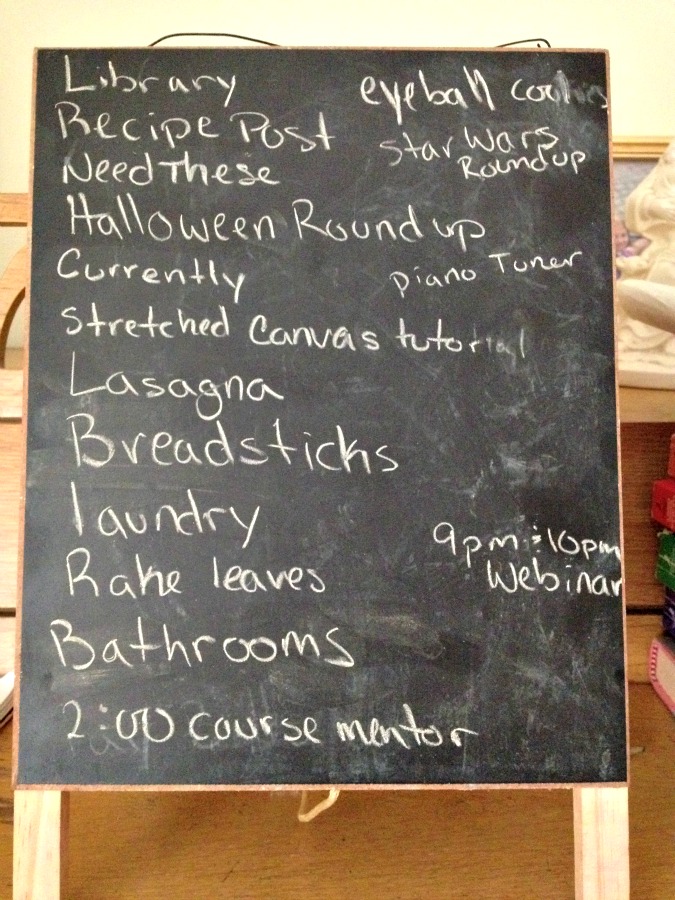 Library
eyeball cookies
Recipe Post
Star Wars
Roundup
Need These
Halloween Roundup
Currently
piano Tuner
Stretched Canvas tutorial
Lasagna
Breadsticks
laundry
9pm : 10pm
Webinar
Rake leaves
Bathrooms
2:00 course mentor